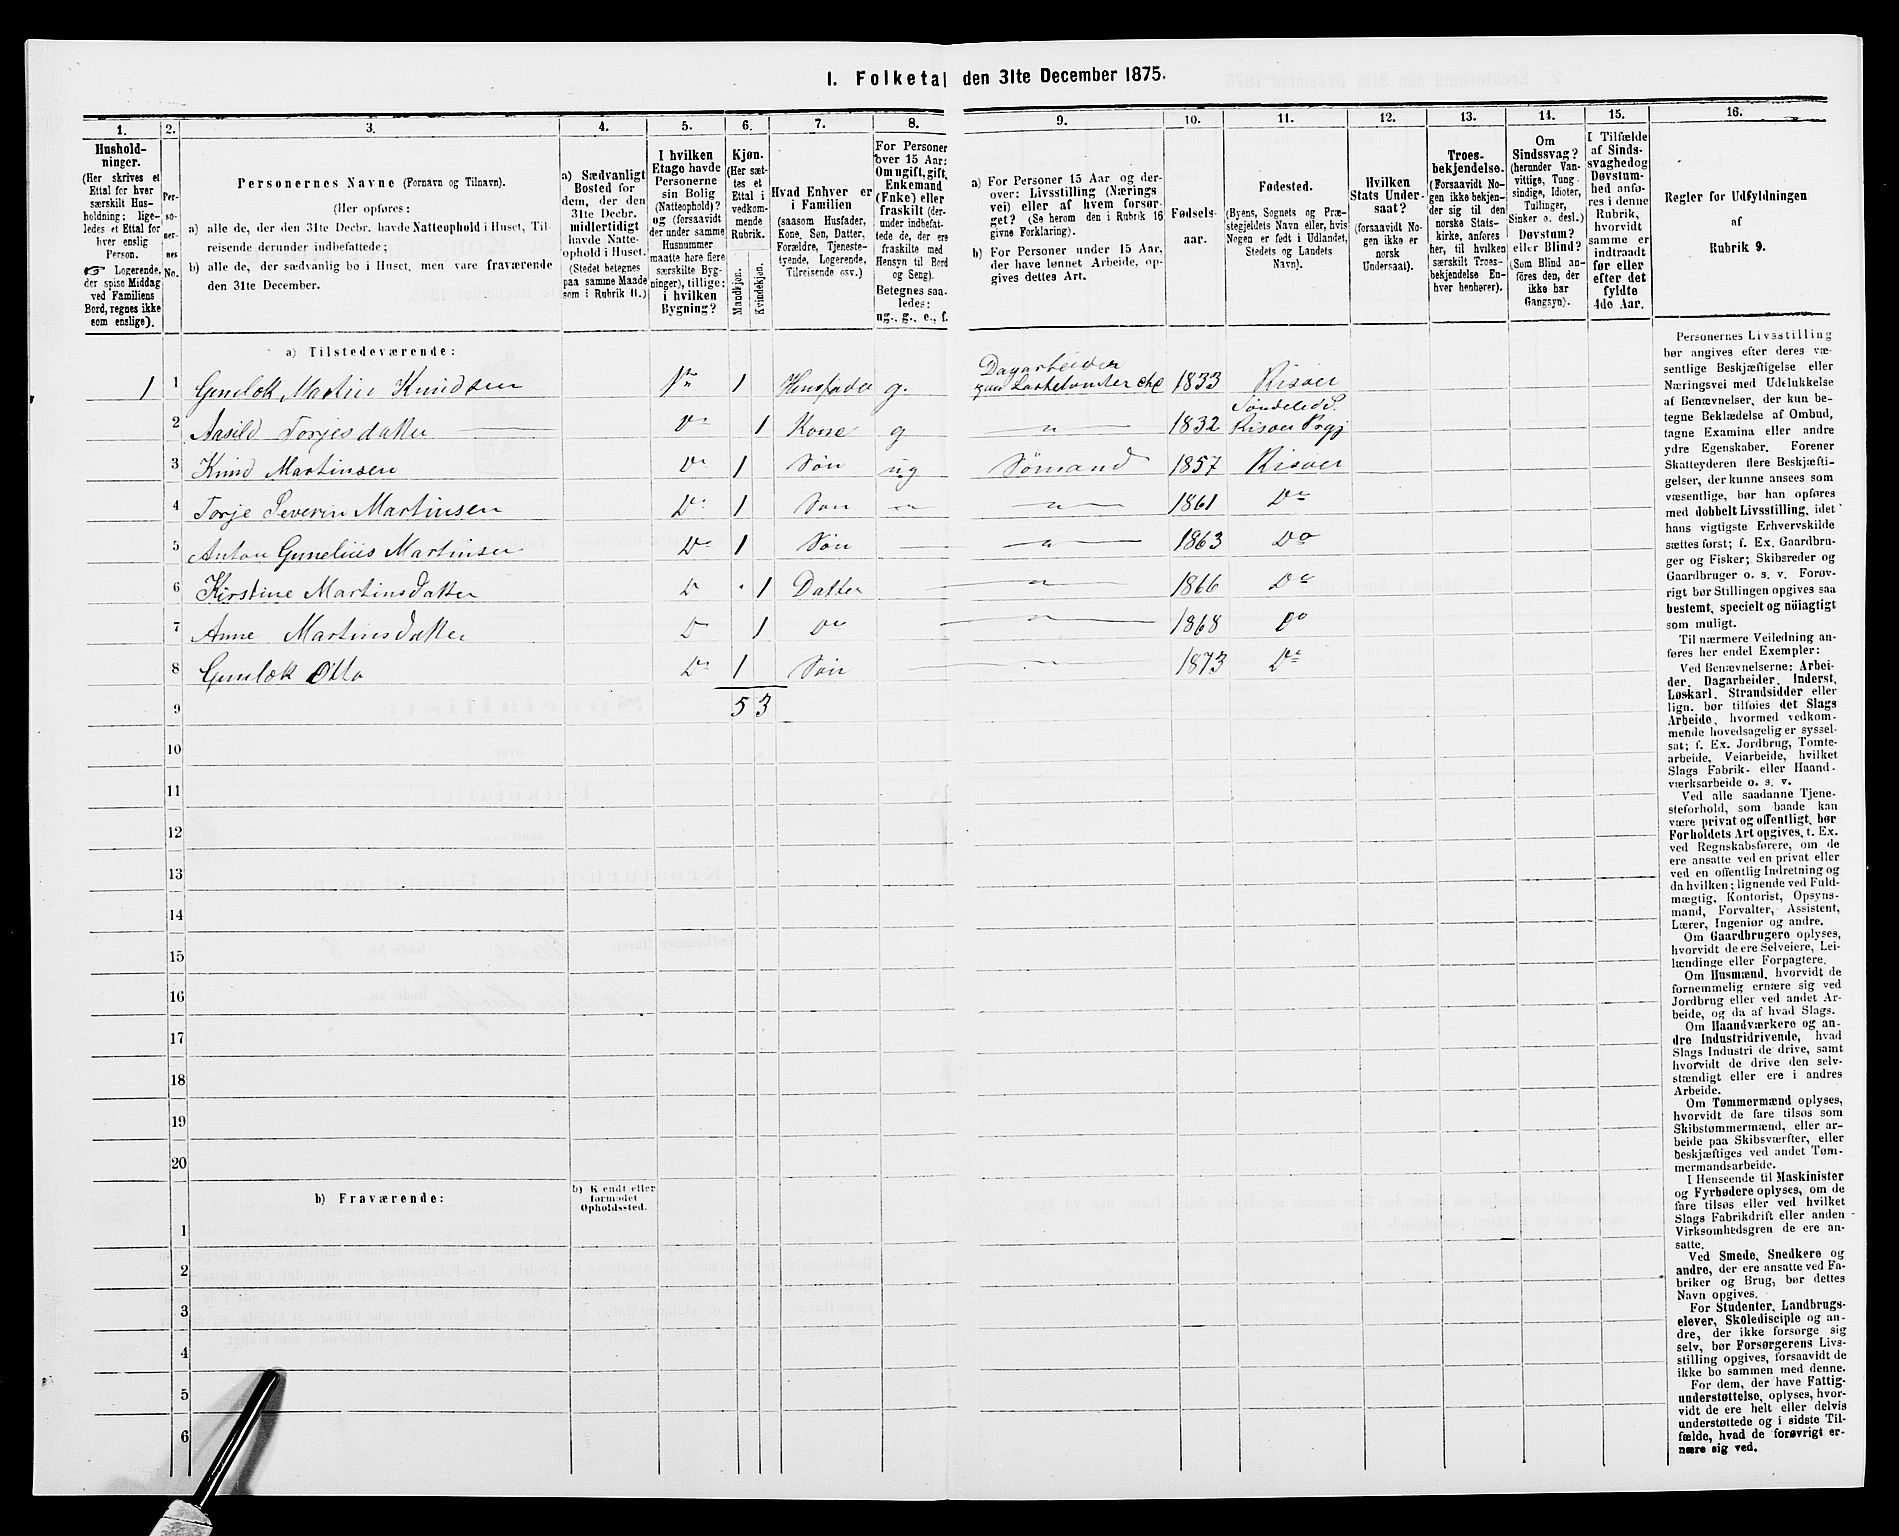 I. Folketal den 31te December 1875.
1.
2.
3.
4.
5.
6.
7.
8.
9.
10.
11.
12.
13.
14.
15.
16.
Hushold-
ninger.
(Her skrives et
Ettal for hver
særskilt Hus-
holdning; lige-
ledes et Ettal for
hver enslig
Person.
☞ Logerende,
der spise Middag
ved Familiens
Bord, regnes ikke
som enslige).
Per-
so-
ner-
nes
No.
Personernes Navne (Fornavn og Tilnavn).
(Her opføres:
a) alle de, der den 31te Decbr. havde Natteophold i Huset, Til-
reisende derunder indbefattede;
b) alle de, der sædvanlig bo i Huset, men vare fraværende
den 31te December.
a) Sædvanligt
Bosted for
dem, der den
31te Decbr.
midlertidigt
havde Natte-
ophold i Huset.
(Stedet betegnes
paa samme Maade
som i Rubrik 11.)
I hvilken
Etage havde
Personerne
sin Bolig
(Natteophold)?
og (forsaavidt
der under samme
Husnummer
maatte høre flere
særskilte Byg-
ninger), tillige:
i hvilken
Bygning?
Kjøn.
(Her sæt-
tes et
Ettal i
vedkom-
mende
Rubrik.
Mandkjøn.
Kvindekjøn.
Hvad Enhver er
i Familien
(saasom Husfader,
Kone, Søn, Datter,
Forældre, Tjeneste-
tyende, Logerende,
Tilreisende osv.)
For Personer
over 15 Aar:
Om ugift, gift,
Enkemand
(Enke) eller
fraskilt (der-
under indbefat-
tede de, der ere
fraskilte med
Hensyn til Bord
og Seng).
Betegnes saa-
ledes:
ug., g., e., f.
a) For Personer 15 Aar og der-
over: Livsstilling (Nærings
vei) eller af hvem forsør-
get? (Se herom den i Rubrik 16
givne Forklaring).
b) For Personer under 15 Aar,
der have lønnet Arbeide, op-
gives dettes Art.
Fødsels-
aar.
Fødested.
(Byens, Sognets og Præ-
stegjeldets Navn eller, hvis
Nogen er født i Udlandet,
Stedets og Landets
Navn).
Hvilken
Stats Under-
saat?
(forsaavidt No-
gen ikke er
norsk
Undersaat).
Troes-
bekjendelse.
(Forsaavidt No-
gen ikke bekjen-
der sig til den
norske Stats-
kirke, anføres
her, til hvilken
særskilt Troes-
bekjendelse En-
hver henhører).
Om
Sindssvag?
(herunder Van-
vittige, Tung-
sindige, Idioter,
Tullinger,
Sinker o. desl.)
Døvstum?
eller Blind?
(Som Blind an-
føres den, der
ikke har
Gangsyn).
I Tilfælde
af Sinds-
svaghed og
Døvstum-
hed anfø-
res i denne
Rubrik,
hvorvidt
samme er
indtraadt
før eller
efter det
fyldte
4de Aar.
Regler for Udfyldningen
af
Rubrik 9.
a) Tilstedeværende:
1 1 Gunlæk Martin Knudsen 1ste 1 Husfader g. Dagarbeider 1833 Risøer
2 Aasild Torjesdatter Do 1 Kone g 1832 Søndeled S. Risøer Prgj
3 Knud Martinsen Do 1 Søn ug Sømand 1857 Risøer
4 Torje Severin Martinsen Do 1 Søn 1861 Do
5 Anton Gunelius Martinsen Do 1 Søn 1863 Do
6 Kirstine Martinsdatter D 1 Datter 1866 Do
7 Anne Martinsdatter D 1 Do 1868 Do
8 Gunlæk Otto Do 1 Søn 1873 Do
9 5 3
10
11
12
13
14
15
16
17
18
19
20
b) Fraværende:
b) Kjendt eller
formodet
Opholdssted.
1
2
3
4
5
6
Personernes Livsstilling
bør angives efter deres væ-
sentlige Beskjæftigelse eller
Næringsvei med Udelukkelse
af Benævnelser, der kun be-
tegne Beklædelse af Ombud,
tagne Examina eller andre
ydre Egenskaber. Forener
Skatteyderen flere Beskjæfti-
gelser, der kunne ansees som
væsentlige, bør han opføres
med dobbelt Livsstilling, idet
hans vigtigste Erhvervskilde
sættes først; f. Ex. Gaardbru-
ger og Fisker; Skibsreder og
Gaardbruger o. s. v. Forøv-
rigt bør Stillingen opgives saa
bestemt, specielt og nøiagtigt
som muligt.
Til nærmere Veiledning an-
føres her endel Exempler:
Ved Benævnelserne: Arbei-
der, Dagarbeider, Inderst,
Løskarl, Strandsidder eller
lign. bør tilføies det Slags
Arbeide, hvormed vedkom-
mende hovedsagelig er syssel-
sat; f. Ex. Jordbrug, Tomte-
arbeide, Veiarbeide, hvilket
Slags Fabrik- eller Haand-
værksarbeide o. s. v.
Ved alle saadanne Tjene-
steforhold, som baade kan
være privat og offentligt, bør
Forholdets Art opgives, t. Ex.
ved Regnskabsførere, om de
ere ansatte ved en privat eller
ved en offentlig Indretning og
da hvilken; lignende ved Fuld-
mægtig, Kontorist, Opsyns-
mand, Forvalter, Assistent,
Lærer, Ingeniør og andre.
Om Gaardbrugere oplyses,
hvorvidt de ere Selveiere, Lei-
lændinge eller Forpagtere.
Om Husmænd, hvorvidt de
fornemmelig ernære sig ved
Jordbrug eller ved andet Ar-
beide, og da af hvad Slags.
Om Haandværkere og an-
dre Industridrivende, hvad
Slags Industri de drive, samt
hvorvidt de drive den selv-
stændigt eller ere i andres
Arbeide.
Om Tømmermænd oplyses,
hvorvidt de fare tilsøs som
Skibstømmermænd, eller ar-
beide paa Skibsværfter, eller
beskjæftiges ved andet Tøm-
mermandsarbeide.
I Henseende til Maskinister
og Fyrbødere oplyses, om de
fare tilsøs eller ved hvilket
Slags Fabrikdrift eller anden
Virksomhedsgren de ere an-
satte.
Ved Smede, Snedkere og
andre, der ere ansatte ved Fa-
briker og Brug, bør dettes
Navn opgives.
For Studenter, Landbrugs-
elever, Skoledisciple og an-
dre, der ikke forsørge sig
selv, bør Forsørgerens Livs-
stilling opgives, forsaavidt de
ikke bo sammen med denne.
For dem, der have Fattig-
understøttelse, oplyses, hvor-
vidt de ere helt eller delvis
understøttede og i sidste Til-
fælde, hvad de forøvrigt er-
nære sig ved.